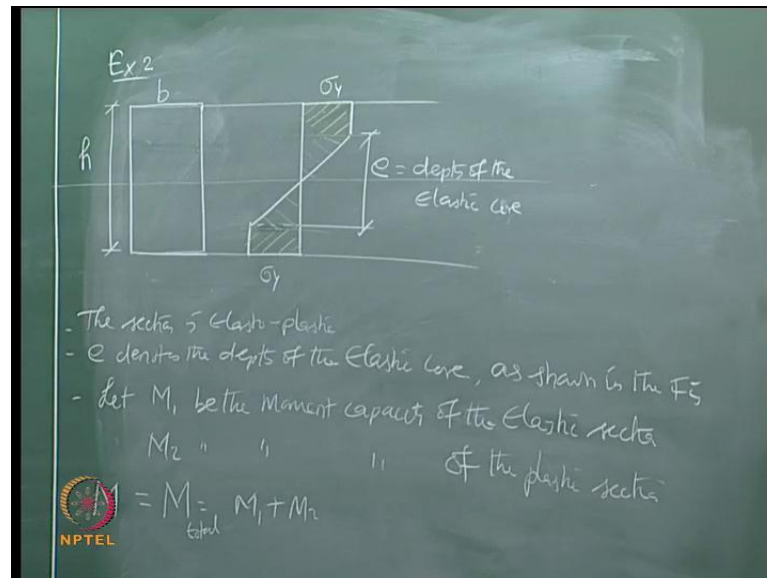 Ex 2
b
σy
h
e = depth of the
Elastic core
σy
- The section is Elasto-plastic
- e denotes the depth of the Elastic core, as shown in the Fig
- Let M1 be the Moment capacity of the Elastic section
M2 " " " of the plastic section
M = Mtotal = M1 + M2
NPTEL